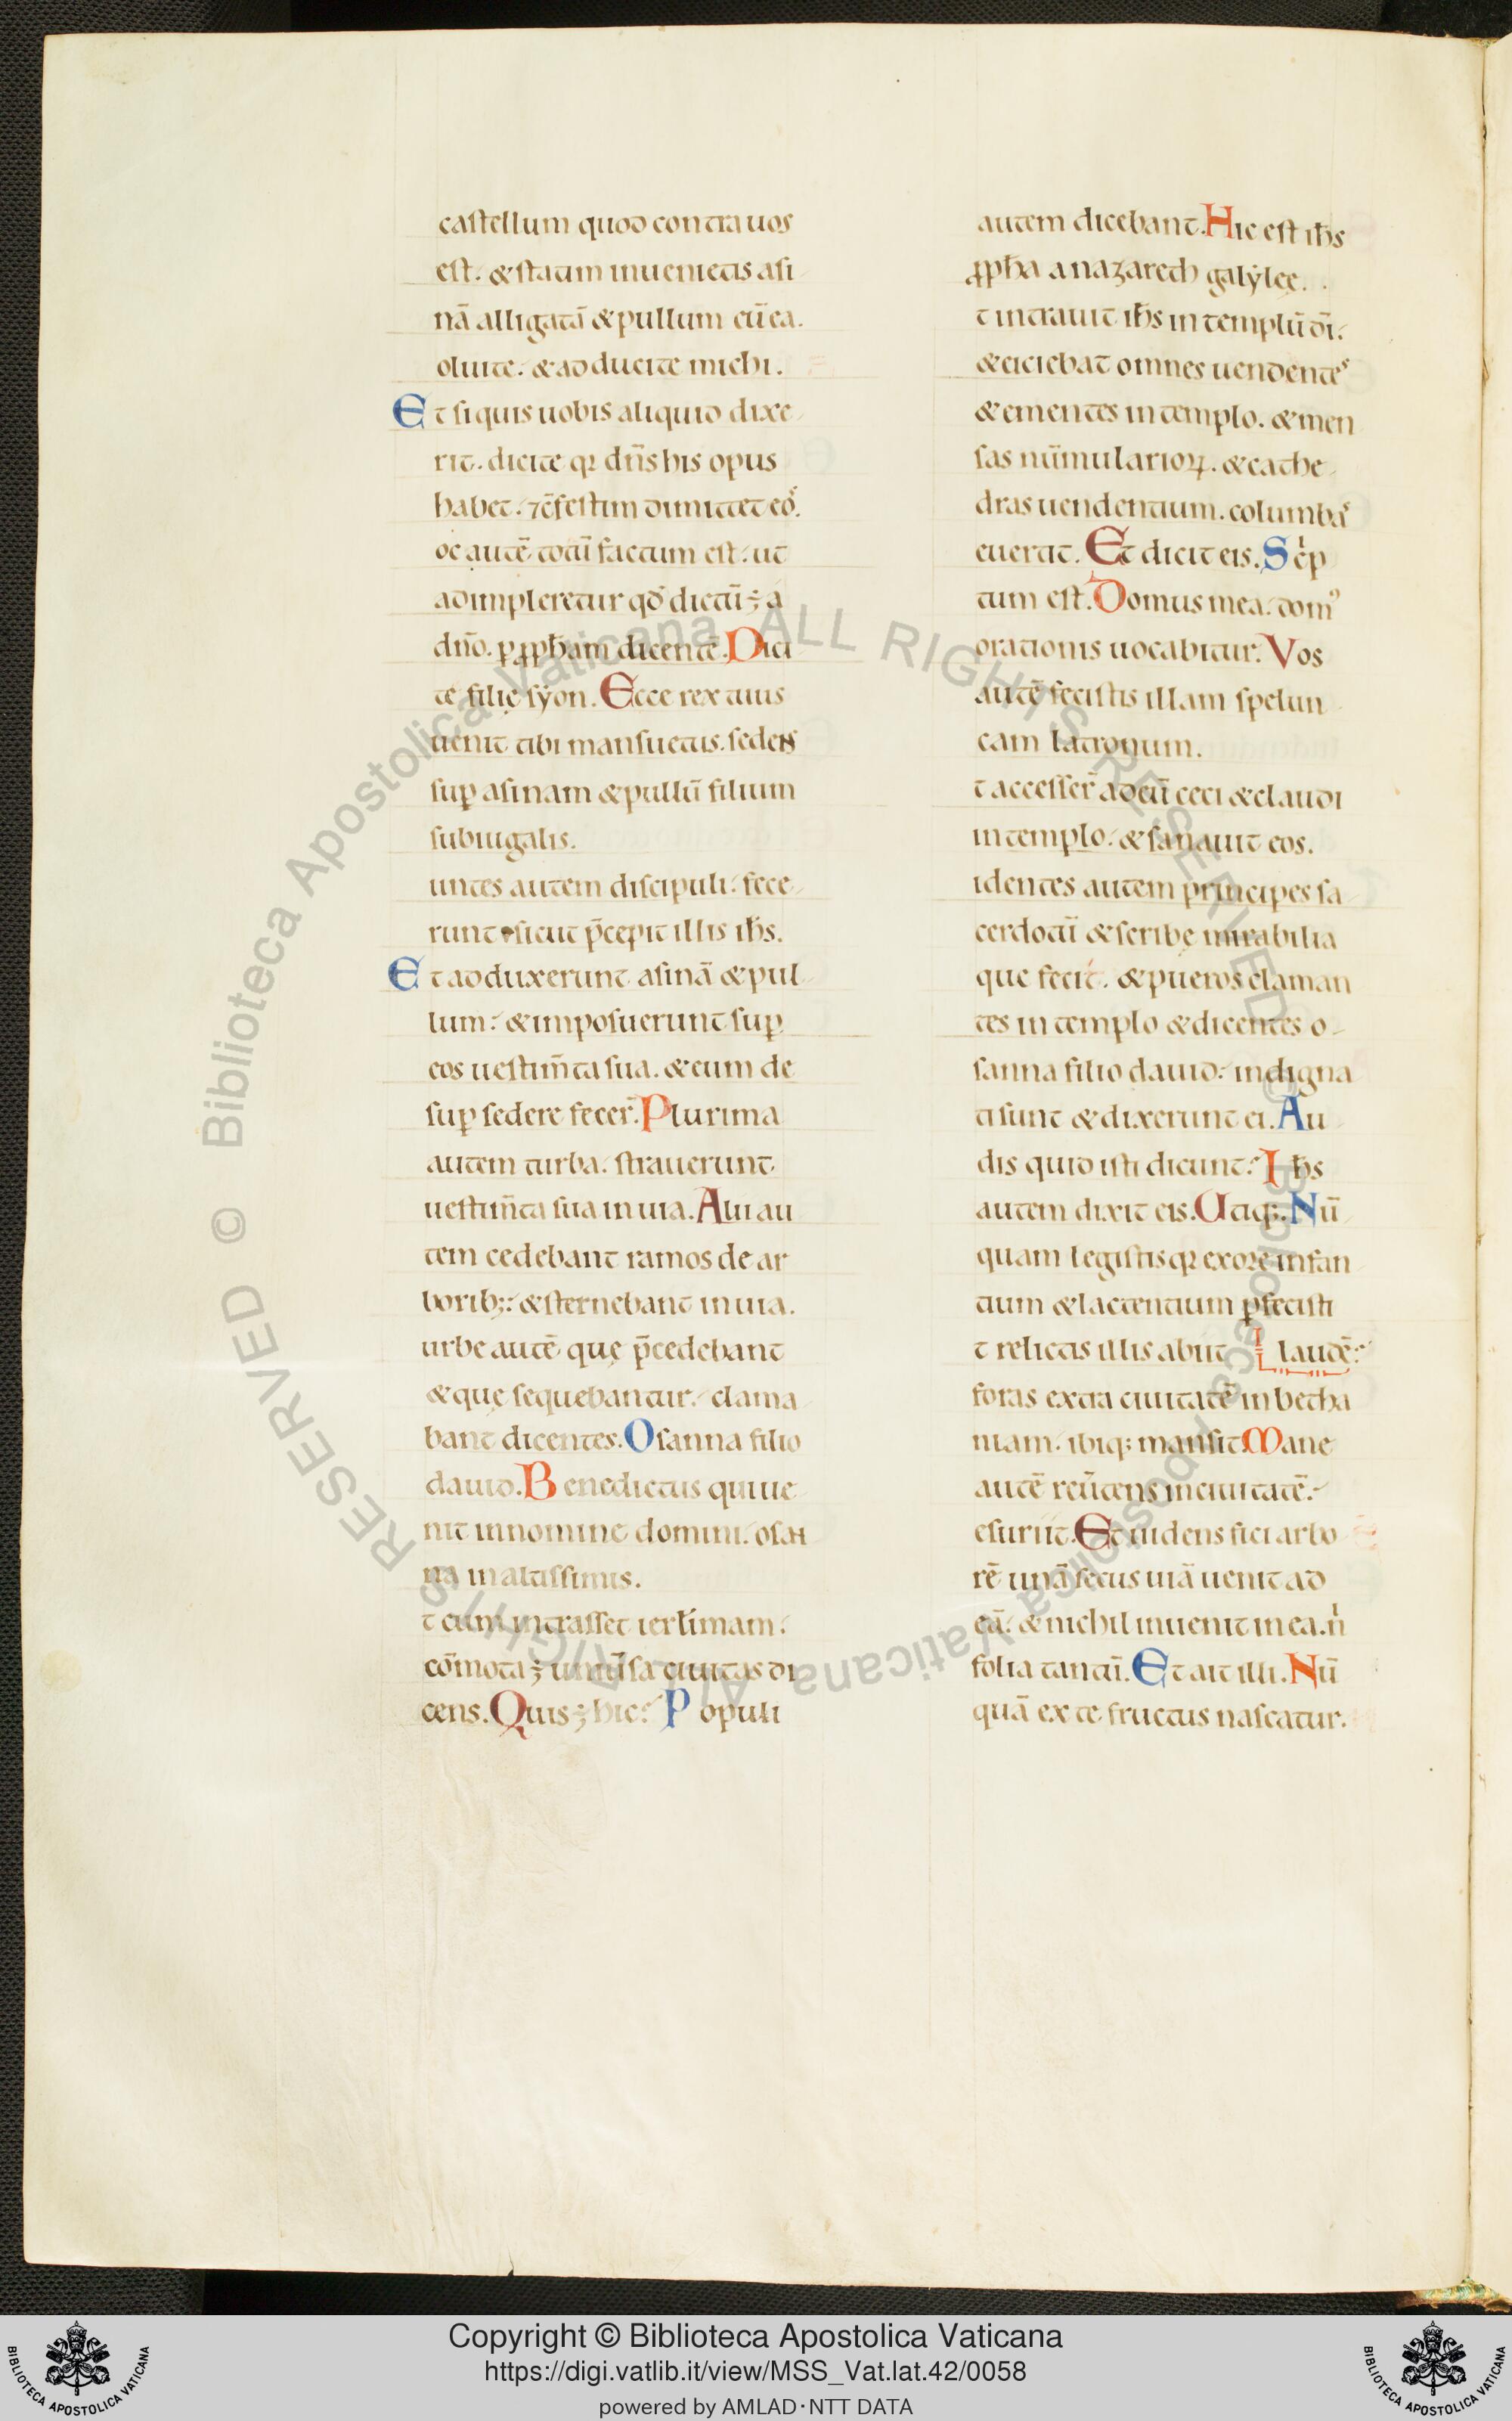 castellum quod contra uos
est. & statim inuenietis asi
nā alligatā & pullum cū ea.
oluite. & adducite michi.
Et si quis uobis aliquid dixe
rit. dicite qꝛ dn̄s his opus
habet. ⁊ cōfestim dimittet eos.
oc autē totū factum est. ut
adimpleretur qđ dictū ē a
dn̄o. ꝑ ꝓph̄am dicentē. Dici
te filię sẏon. Ecce rex tuus
uenit tibi mansuetus. sedens
suꝑ asinam & pullū filium
subiugalis.
untes autem discipuli. fece
runt sicut p̄cepit illis ih̄s.
Et adduxerunt asinā & pul
lum. & imposuerunt suꝑ
eos uestim̄ta sua. & eum de
suꝑ sedere fecer̄. Plurima
autem turba. strauerunt
uestim̄ta sua in uia. Alii au
tem cedebant ramos de ar
borib;. & sternebant in uia.
urbe autē quę p̄cedebant
& quę sequebantur. clama
bant dicentes. Osanna filio
dauid. Benedictus qui ue
nit in nomine domini. osan
na in altissimis.
t cum intrasset ierł̄imam.
cōmota ē uniūsa ciuitas di
cens. Quis ē hic? Populi
autem dicebant. Hic est ih̄s
ꝓph̄a a nazareth galẏlęe.
t intrauit ih̄s in templū dī.
& eiciebat omnes uendentes
& ementes in templo. & men
sas nūmularioꝝ. & cathe
dras uendentium. columbas
euertit. Et dicit eis. Sc̄p
tum est. Domus mea. domꝰ
orationis uocabitur. Vos
autē fecistis illam spelun
cam latronum.
t accesser̄ ad eū ceci & claudi
in templo. & sanauit eos.
identes autem principes sa
cerdotū & scribę mirabilia
que fecit. & pueros claman
tes in templo & dicentes o
sanna filio dauid. indigna
ti sunt & dixerunt ei. Au
dis quid isti dicunt? Ih̄s
autem dixit eis. Utiq;. Nū
quam legistis qꝛ ex ore infan
tium & lactentium ꝑfecisti
t relictis illis abiit laudē?
foras extra ciuitatē in betha
niam. ibiq; mansit. Mane
autē reūtens in ciuitatē.
esuriit. Et uidens fici arbo
rē unā secus uiā uenit ad
eā. & nichil inuenit in ea. n̍
folia tantū. Et ait illi. Nū
quā ex te fructus nascatur.
© Biblioteca Apostolica Vaticana ALL RIGHTS RESERVED
© Biblioteca Apostolica Vaticana ALL RIGHTS RESERVED
Copyright © Biblioteca Apostolica Vaticana
https://digi.vatlib.it/view/MSS_Vat.lat.42/0058
powered by AMLAD·NTT DATA
BIBLIOTECA APOSTOLICA VATICANA
BIBLIOTECA APOSTOLICA VATICANA